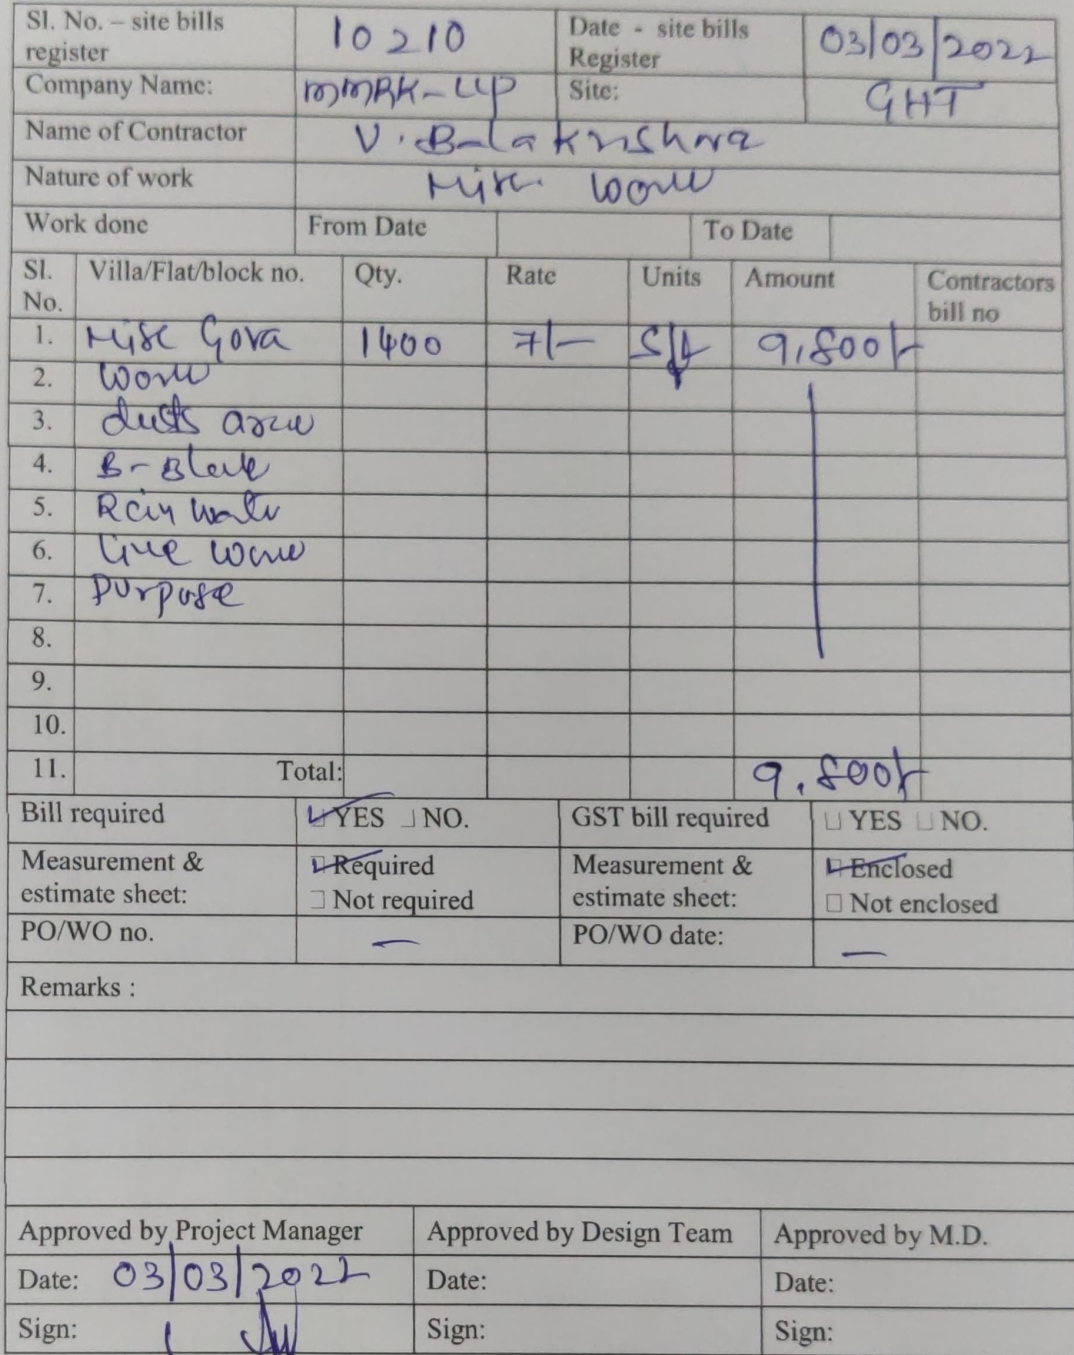 Sl. No. – site bills register 10210 Date - site bills Register 03/03/2022
Company Name: MMRK-LLP Site: GHT
Name of Contractor V. Balakrishna
Nature of work Misc. work
Work done From Date To Date
Sl. No. Villa/Flat/block no. Qty. Rate Units Amount Contractors bill no
1. Misc Gova 1400 7/- sft 9,800/-
2. work
3. ducts area
4. B-Block
5. Rain water
6. line work
7. purpose
8.
9.
10.
11. Total: 9,800/-
Bill required YES NO. GST bill required YES NO.
Measurement & estimate sheet: Required Measurement & estimate sheet: Enclosed
Not required Not enclosed
PO/WO no. — PO/WO date: —
Remarks :
Approved by Project Manager Approved by Design Team Approved by M.D.
Date: 03/03/2022 Date: Date:
Sign: Sign: Sign: